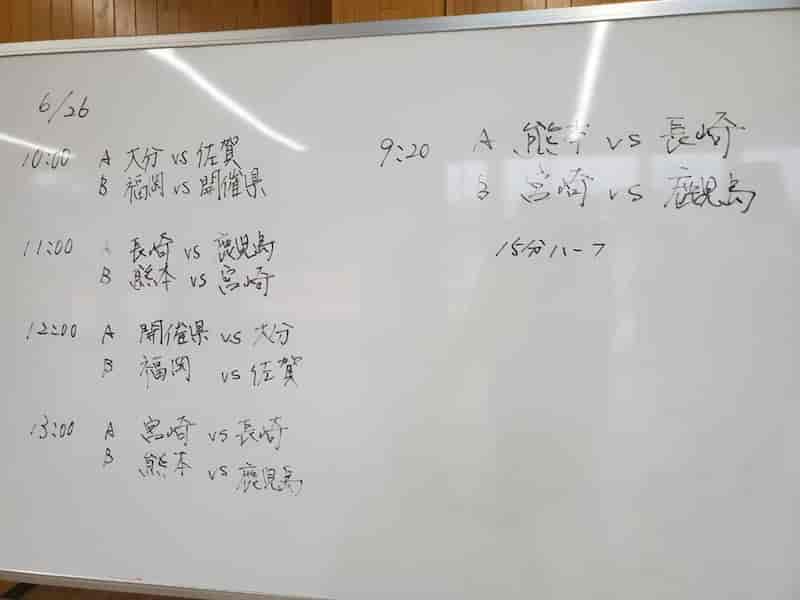 6/26
10:00 A 大分 vs 佐賀
B 福岡 vs 開催県
11:00 A 長崎 vs 鹿児島
B 熊本 vs 宮崎
12:00 A 開催県 vs 大分
B 福岡 vs 佐賀
13:00 A 宮崎 vs 長崎
B 熊本 vs 鹿児島
9:20 A 熊本 vs 長崎
B 宮崎 vs 鹿児島
15分ハーフ